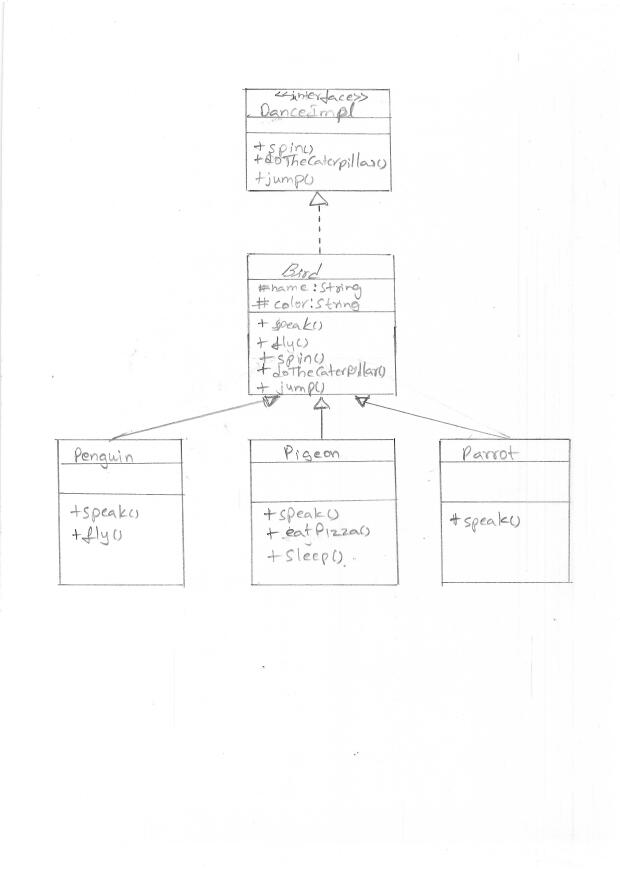 <<interface>>
DanceImpl
+spin()
+doTheCaterpillar()
+jump()
Bird
#name:String
# color:String
+ speak()
+ fly()
+ spin()
+doTheCaterpillar()
+ jump()
Penguin
+speak()
+fly()
Pigeon
+speak()
+ eatPizza()
+ Sleep()
Parrot
+speak()